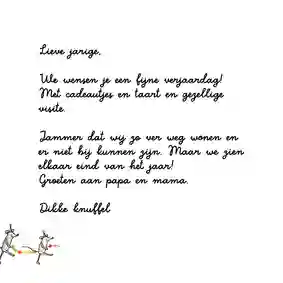 Lieve jarige,
We wensen je een fijne verjaardag!
Met cadeautjes en taart en gezellige
visite.
Jammer dat wij zo ver weg wonen en
er niet bij kunnen zijn. Maar we zien
elkaar eind van het jaar!
Groeten aan papa en mama.
Dikke knuffel